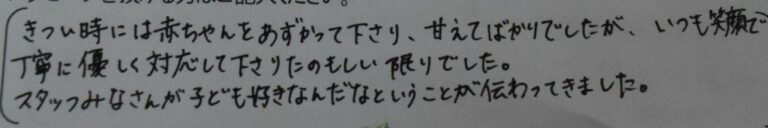 きつい時には赤ちゃんをあずかって下さり、甘えてばかりでしたが、いつも笑顔で
丁寧に優しく対応して下さりたのもしい限りでした。
スタッフみなさんが子ども好きなんだなということが伝わってきました。